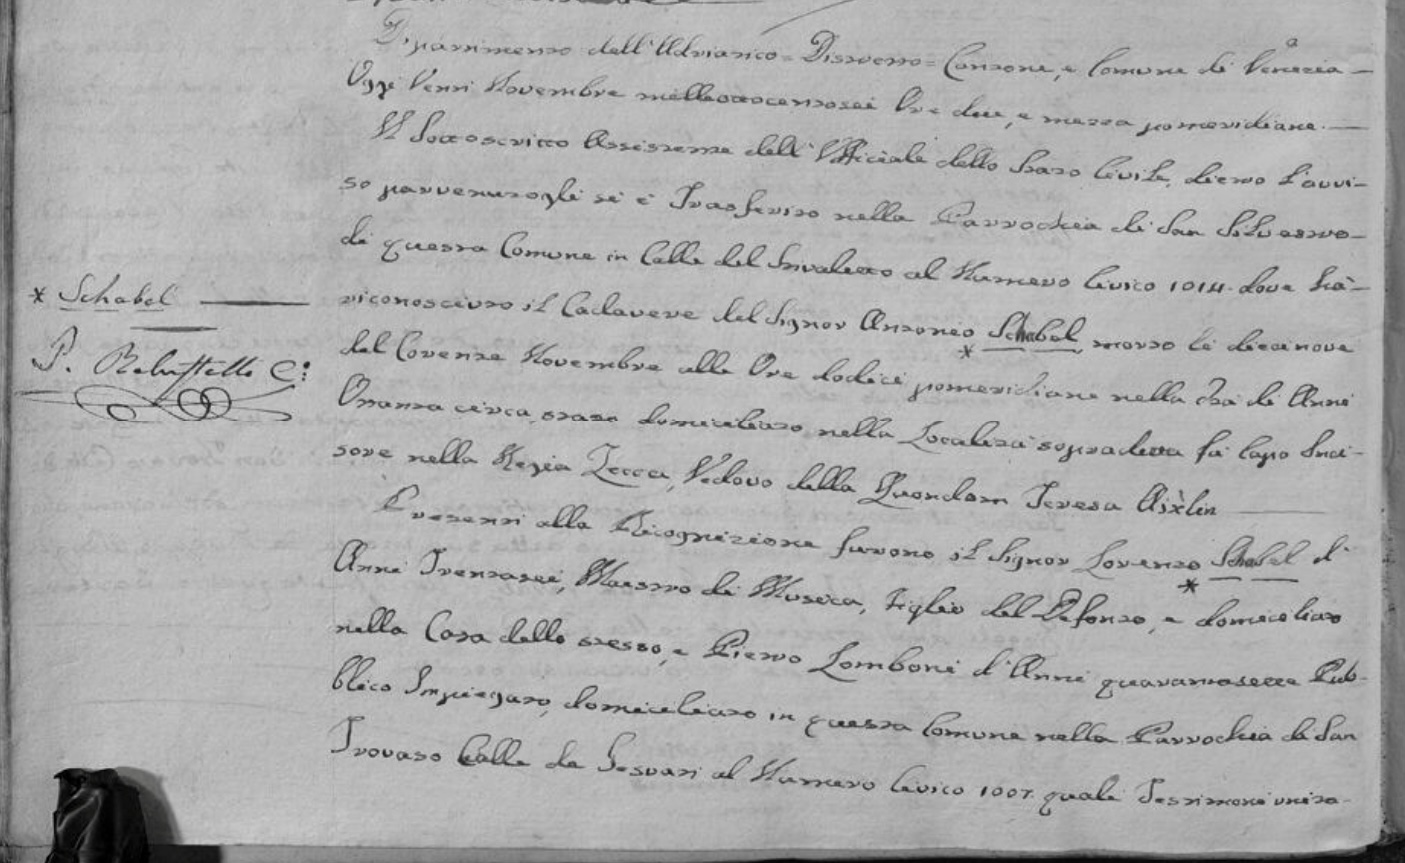 Dipartimento dell'Adriatico = Distretto = Cantone, e Comune di Venezia —
Oggi Venti Novembre milleottocentosei Ore due, e mezza pomeridiane. —
Il Sottoscritto Assistente dell'Ufficiale dello Stato Civile, dietro l'avvi-
so pervenutogli si è Trasferito nella Parrochia di San Silvestro -
di questa Comune in Calle del Stivaletto al Numero Civico 1014. dove hà -
* Schabel —
riconosciuto il Cadavere del Signor Antonio Schabel, morto li diecinove
*
P. Rebustelli C:
del Corente Novembre alle Ore dodici pomeridiane nella Età di Anni
Ottanta circa, stato domiciliato nella Località sopradetta fù Capo Inci-
sore nella Regia Zecca, Vedovo della Quondam Teresa
Presenti alla Ricognizione furono il Signor Lorenzo Schabel d'
*
Anni Trentasei, Maestro di Musica, Figlio del Defonto, e domiciliato
nella Casa dello stesso, e Pietro Lomboni d'Anni quarantasette Pub-
blico Impiegato, domiciliato in questa Comune nella Parrochia di San
Trovaso Calle de Gesuati al Numero Civico 1007. quali Testimoni unita-